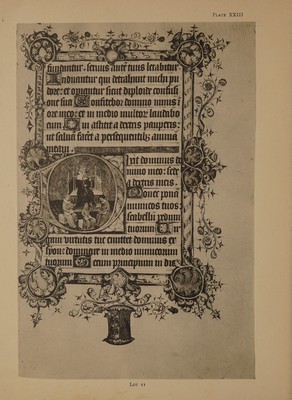 PLATE XXIII
ſunguntur. ſeruus autē tuus letabitur
Induantur qui detrahunt michi pu
dore: et operiantur ſicut diploide confuſi
one ſua Confitebor domino nimis ī
ore meo: et in medio multorū laudabo
eum Qui aſtitit a dextris pauperis:
ut ſaluā facēt a perſequentibꝫ animā
meam.
Dixit dominus do
mino meo: ſede
a dextris meis.
Donec ponā
inimicos tuos:
ſcabellū pedum
tuorum Uir
gam virtutis tue emittet dominus ex
ſyon: dominare in medio inimicorum
tuorum Tecum principium in die